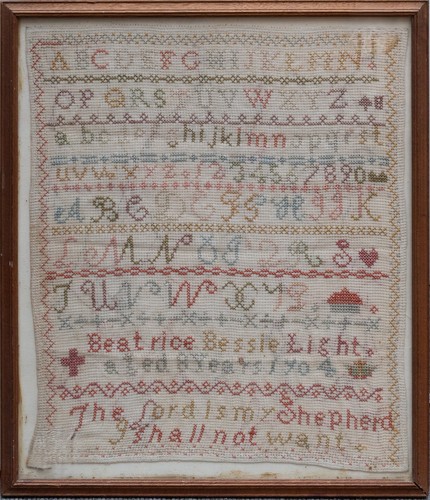 ABCDEFGHIJKLMN
OPQRSTUVWXYZ
abcdefghijklmnopqrst
uvwxyz.1234567890
BCDE FGHIJK
LMNOPQRS
TUVWXYZ
Beatrice Bessie Light.
aged 8 Years 1904
The Lord Is my Shepherd
I shall not want.